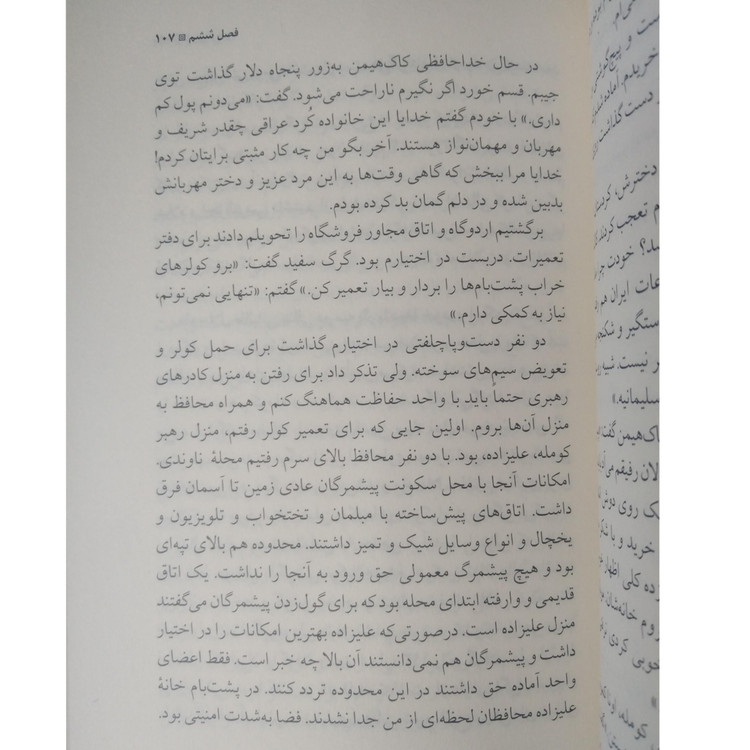 فصل ششم ۱۰۷
در حال خداحافظی کاک‌هیمن به‌زور پنجاه دلار گذاشت توی
جیبم. قسم خورد اگر نگیرم ناراحت می‌شود. گفت: «می‌دونم پول کم
داری.» با خودم گفتم خدایا این خانواده کُرد عراقی چقدر شریف و
مهربان و مهمان‌نواز هستند. آخر بگو من چه کار مثبتی برایتان کردم!
خدایا مرا ببخش که گاهی وقت‌ها به این مرد عزیز و دختر مهربانش
بدبین شده و در دلم گمان بد کرده بودم.
برگشتیم اردوگاه و اتاق مجاور فروشگاه را تحویلم دادند برای دفتر
تعمیرات. دربست در اختیارم بود. گرگ سفید گفت: «برو کولرهای
خراب پشت‌بام‌ها را بردار و بیار تعمیر کن.» گفتم: «تنهایی نمی‌تونم،
نیاز به کمکی دارم.»
دو نفر دست‌وپاچلفتی در اختیارم گذاشت برای حمل کولر و
تعویض سیم‌های سوخته. ولی تذکر داد برای رفتن به منزل کادرهای
رهبری حتماً باید با واحد حفاظت هماهنگ کنم و همراه محافظ به
منزل آن‌ها بروم. اولین جایی که برای تعمیر کولر رفتم، منزل رهبر
کومله، علیزاده، بود. با دو نفر محافظ بالای سرم رفتیم محلهٔ ناوندی.
امکانات آنجا با محل سکونت پیشمرگان عادی زمین تا آسمان فرق
داشت. اتاق‌های پیش‌ساخته با مبلمان و تختخواب و تلویزیون و
یخچال و انواع وسایل شیک و تمیز داشتند. محدوده هم بالای تپه‌ای
بود و هیچ پیشمرگ معمولی حق ورود به آنجا را نداشت. یک اتاق
قدیمی و وارفته ابتدای محله بود که برای گول‌زدن پیشمرگان می‌گفتند
منزل علیزاده است. درصورتی‌که علیزاده بهترین امکانات را در اختیار
داشت و پیشمرگان هم نمی‌دانستند آن بالا چه خبر است. فقط اعضای
واحد آماده حق داشتند در این محدوده تردد کنند. در پشت‌بام خانهٔ
علیزاده محافظان لحظه‌ای از من جدا نشدند. فضا به‌شدت امنیتی بود.